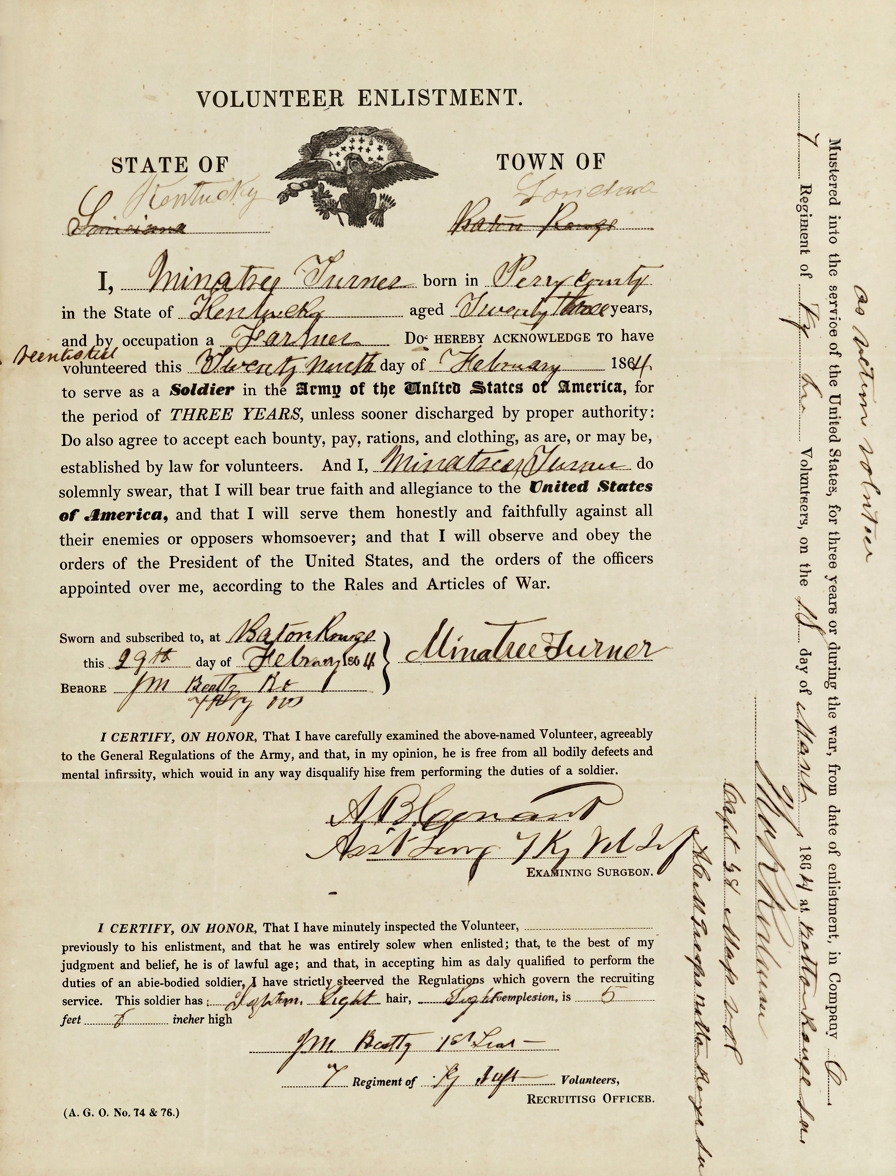 VOLUNTEER ENLISTMENT.
STATE OF TOWN OF
Kentucky
Louisiana Baton Rouge
I, Minatree Turner born in Perry County
in the State of Kentucky aged Twenty three years,
and by occupation a Farmer Do HEREBY ACKNOWLEDGE to have
volunteered this Twenty ninth day of February 1864,
to serve as a Soldier in the Army of the United States of America, for
the period of THREE YEARS, unless sooner discharged by proper authority:
Do also agree to accept each bounty, pay, rations, and clothing, as are, or may be,
established by law for volunteers. And I, Minatree Turner do
solemnly swear, that I will bear true faith and allegiance to the United States
of America, and that I will serve them honestly and faithfully against all
their enemies or opposers whomsoever; and that I will observe and obey the
orders of the President of the United States, and the orders of the officers
appointed over me, according to the Rales and Articles of War.
Sworn and subscribed to, at Baton Rouge
this 29th day of February 1864
Minatree Turner
BERORE JM Beatty
I CERTIFY, ON HONOR, That I have carefully examined the above-named Volunteer, agreeably
to the General Regulations of the Army, and that, in my opinion, he is free from all bodily defects and
mental infirssity, which wouid in any way disqualify hise frem performing the duties of a soldier.
Asst Surg 7 Ky Vol Inf
EXAMINING SURGEON.
I CERTIFY, ON HONOR, That I have minutely inspected the Volunteer,
previously to his enlistment, and that he was entirely solew when enlisted; that, te the best of my
judgment and belief, he is of lawful age; and that, in accepting him as daly qualified to perform the
duties of an abie-bodied soldier, I have strictly sbeerved the Regulations which govern the recruiting
service. This soldier has: Light hair, Light emplesion, is 5
feet ineher high
JM Beatty 1st Lieut
7 Regiment of Ky Inft Volunteers,
RECRUITING OFFICEB.
(A. G. O. No. 74 & 76.)
Mustered into the service of the United States, for three years or during the war, from date of enlistment, in Company
7 Regiment of Ky Volunteers, on the day of March 1864 at Baton Rouge La.